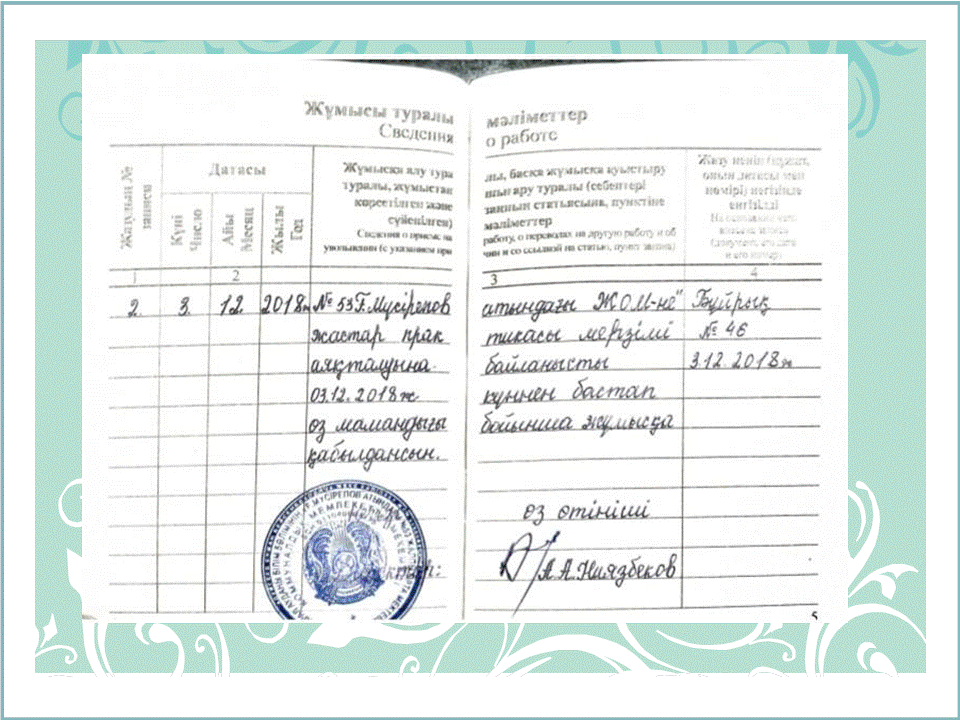 Жұмысы туралы мәліметтер
Сведения о работе
Жазудың №
записи
Датасы
Күні
Число
Айы
Месяц
Жылы
Год
Жұмысқа алу тура
туралы, жұмыстан
көрсетілген және
сүйенілген)
Сведения о приеме на
увольнении (с указанием при
лы, басқа жұмысқа ауыстыру
шығару туралы (себептері
заңның статьясына, пунктіне
мәліметтер
работу, о переводах на другую работу и об
чин и со ссылкой на статью, пункт закона)
Жазу ненің (құжат,
оның датасы мен
нөмірі) негізінде
енгізілді
На основании чего
внесена запись
(документ, его дата
и его номер)
1 2 3 4
2. 3. 12. 2018ж №53 Ғ.Мүсірепов атындағы ЖОМ-не" Бұйрық
жастар прак тикасы мерзімі №46
аяқталуына байланысты 3.12.2018ж
03.12.2018ж күннен бастап
өз мамандығы бойынша жұмысқа
қабылдансын.
өз өтініші
А.А.Ниязбеков
5